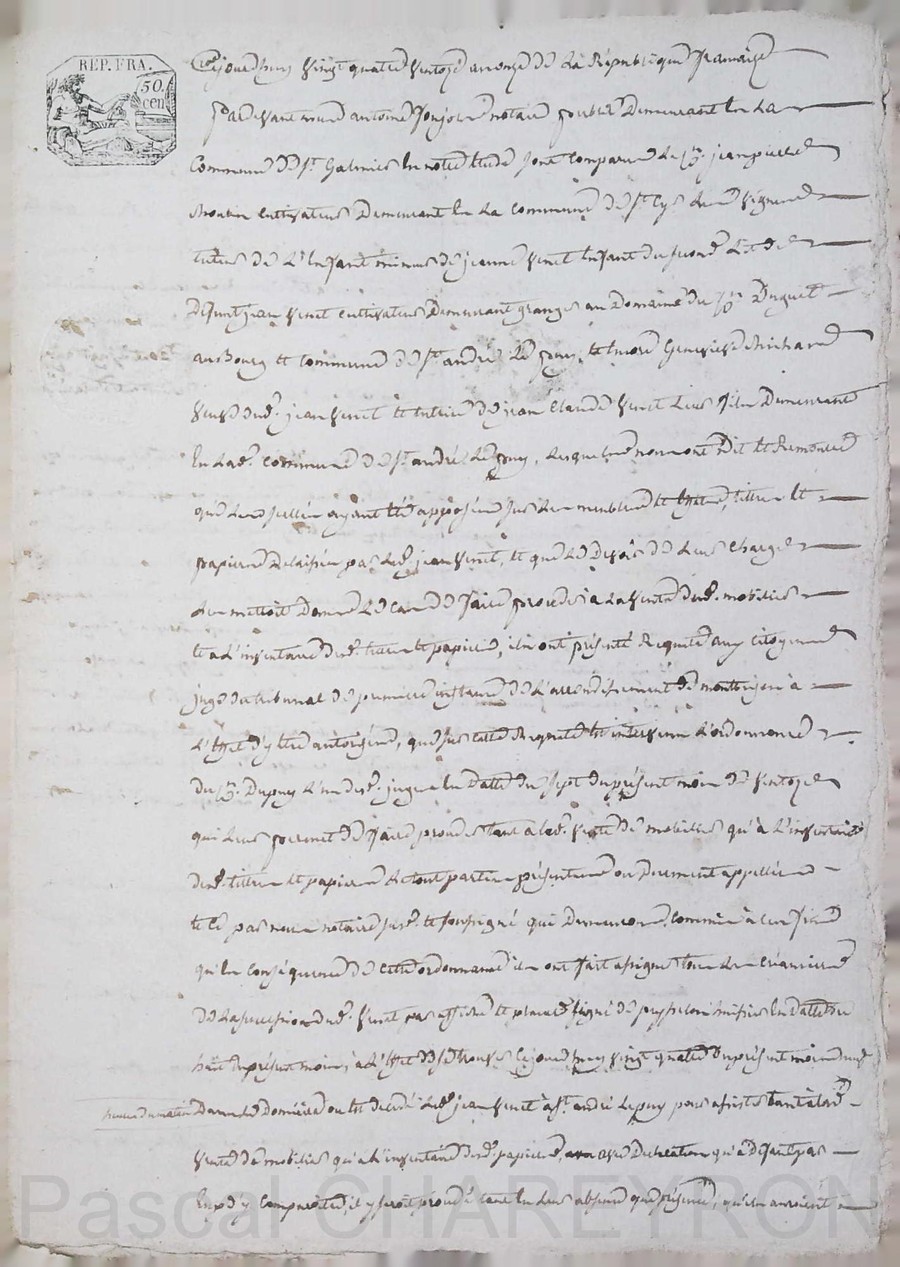 REP. FRA.
50. cen
Cejourd'huy vingt quatre ventose an onze de la République francaise
Pardevant nous antoine notaire public demeurant en la
Commune de St. Galmier en notre étude sont comparus le Sr. jean pierre
cultivateur demeurant en la Commune de St. Cyr les vignes
tuteur de l'enfant mineur de jeanne Vinet enfant du second lit de
défunt jean Vinet cultivateur demeurant granger au Domaine du Sr. Duguet
au Bourg et Commune de St. andré le puy, et encore Genevieve
veuve dud. jean Vinet et tutrice de jean Claude Vinet leur fils demeurant
en lad. commune de St. andré le puy, lesquels nous ont dit et remontré
que les scellés ayant été apposés sur les meubles et effets, titres et
papiers délaissés par led. jean Vinet, et que le devoir de leur charge
les mettoit dans le cas de faire proceder à la vente dud. mobilier
et a l'inventaire desd. titres et papiers, ils ont présenté Requête aux citoyens
juges du tribunal de premiere instance de l'arrondissement de montbrison à
l'effet d'y être autorisés, que sur cette Requete est intervenue l'ordonnance
du Sr. Dupuy l'un desd. juges en datte du sept du présent mois de ventose
qui leur permet de faire proceder tant a lad. vente de mobilier qu'à l'inventaire
desd. titres et papiers le tout parties présentes ou duement appellées
et ce par nous notaire sus. et soussigné qui demeurons commis à ces fins
qu'en conséquence de cette ordonnance ils ont fait assigner tous les créanciers
de la succession dud. Vinet par affiche et placard signé de en datte du
huit du présent mois, à l'effet de se trouver cejourd'huy vingt quatre du présent mois de
heures du matin dans le Domicile ou est décédé led. jean Vinet à St. andré le puy pour assister tant à lad.
vente de mobilier qu'a l'inventaire desd. papiers, avec déclaration qu'à défaut par
eux d'y comparoitre, il y seroit procédé tant en leur absence que présence, qu'ils auroient
Pascal CHAREYRON